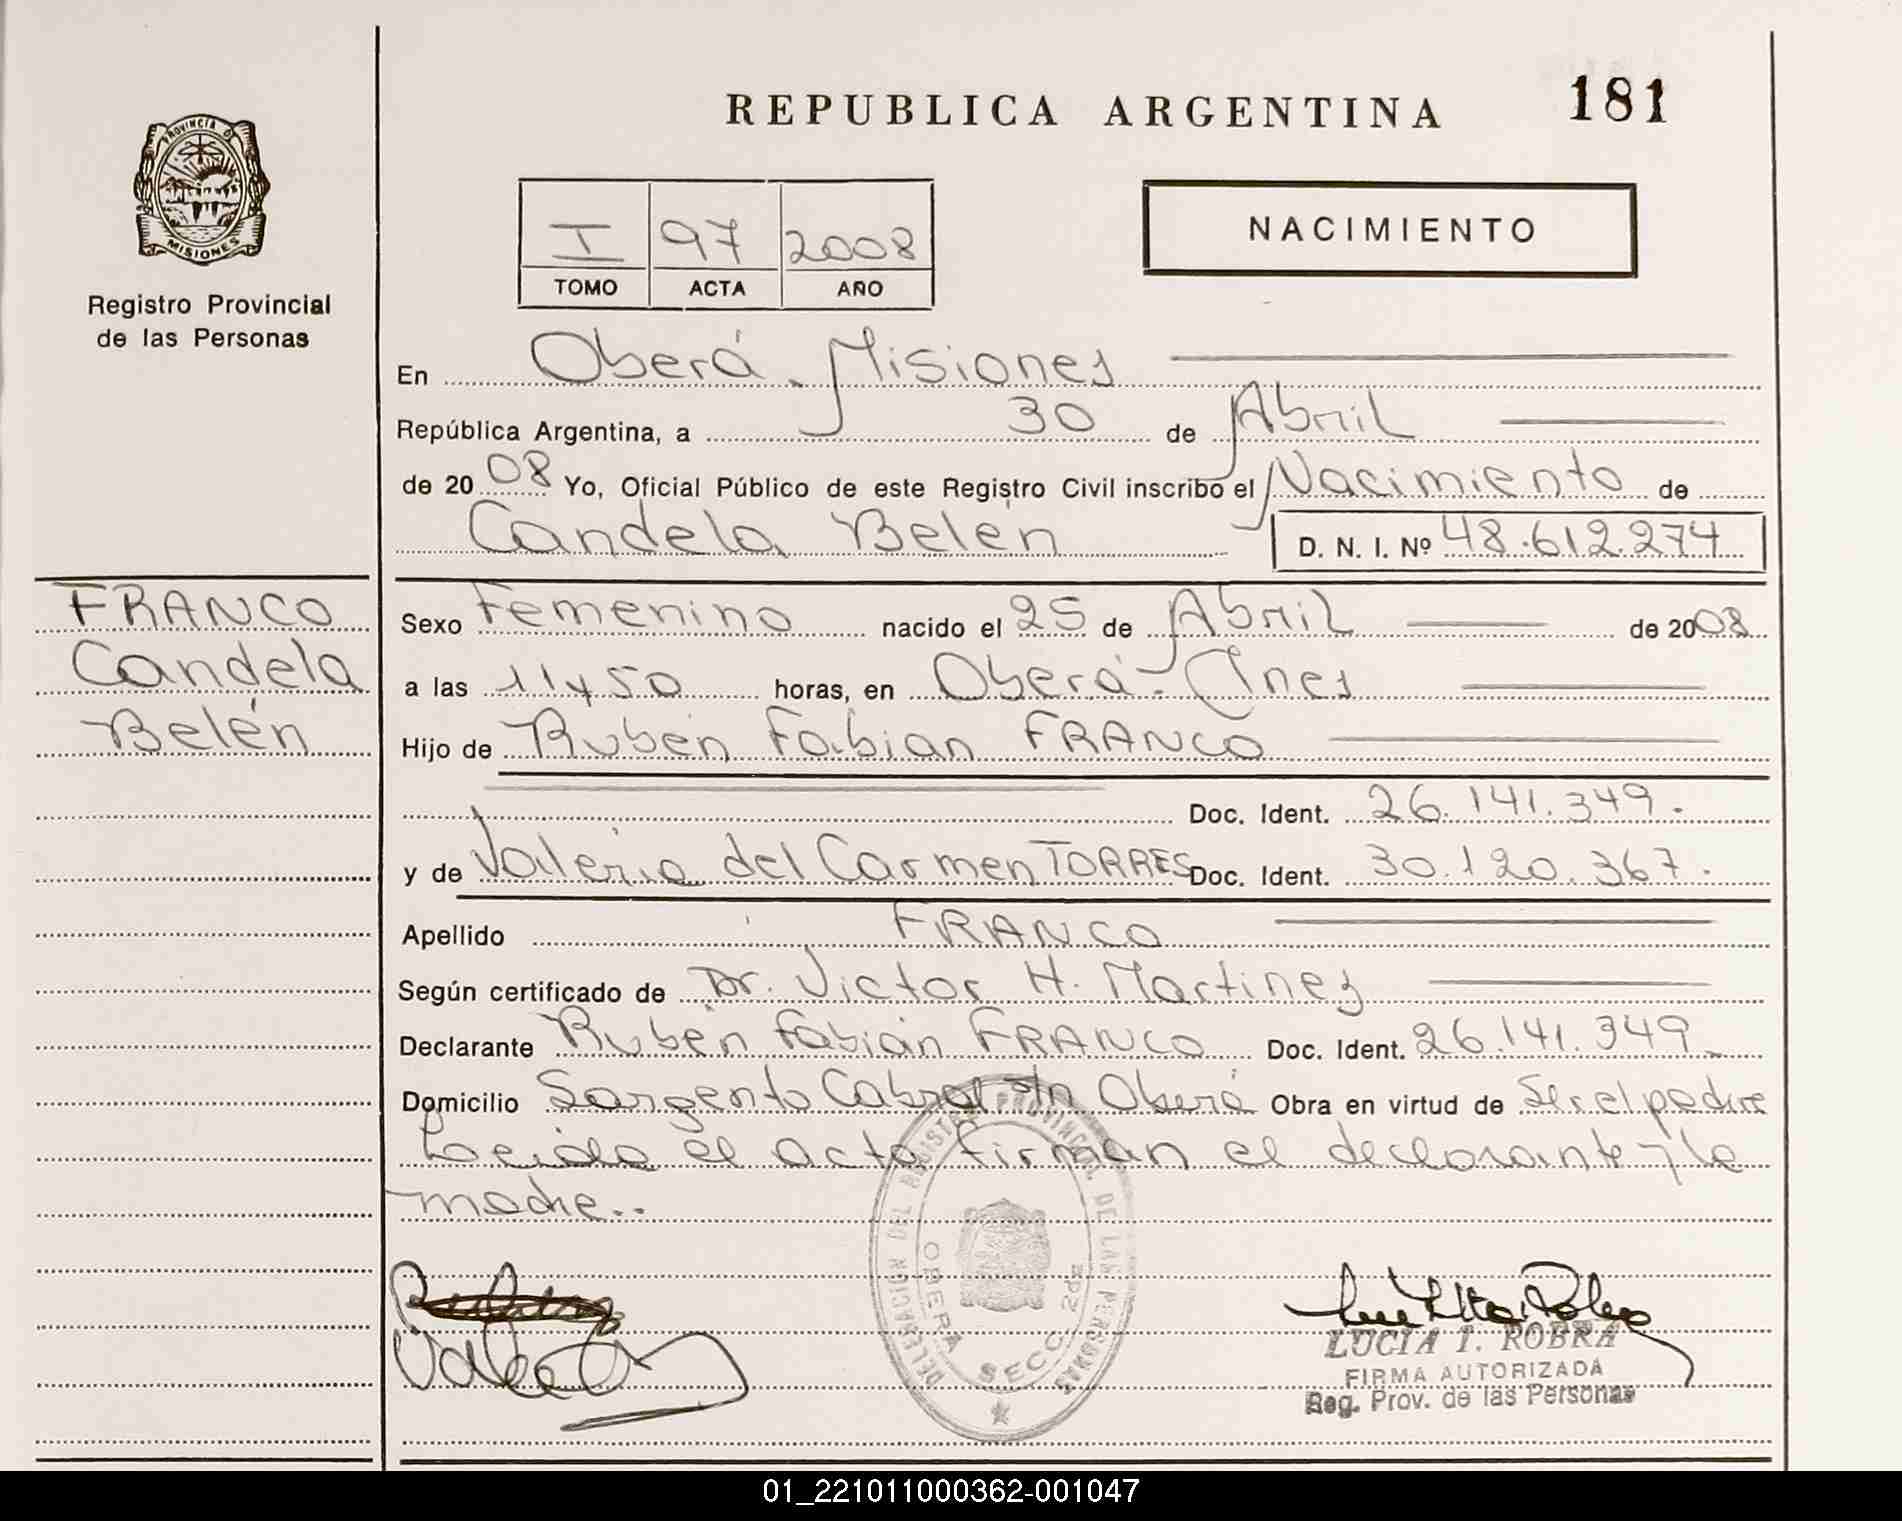 REPUBLICA ARGENTINA
181
PROVINCIA D
MISIONES
Registro Provincial
de las Personas
I 97 2008
TOMO ACTA AÑO
NACIMIENTO
En Oberá - Misiones
República Argentina, a 30 de Abril
de 2008 Yo, Oficial Público de este Registro Civil inscribo el Nacimiento de
Candela Belén D. N. I. Nº 48.612.274
FRANCO
Candela
Belén
Sexo Femenino nacido el 25 de Abril de 2008
a las 11 y 50 horas, en Oberá - Ines
Hijo de Rubén Fabian FRANCO
Doc. Ident. 26.141.349.
y de Valeria del Carmen TORRES Doc. Ident. 30.120.367.
Apellido FRANCO
Según certificado de Dr. Victor H. Martinez
Declarante Rubén Fabián FRANCO Doc. Ident. 26.141.349
Domicilio Sargento Cabral s/n Oberá Obra en virtud de ser el padre
Leida el acta firman el declarante y la
madre..
DELEGACION DEL REGISTRO PROVINCIAL DE LAS PERSONAS
OBERA SECC. 2da
LUCIA I. ROBRA
FIRMA AUTORIZADA
Reg. Prov. de las Personas
01_221011000362-001047